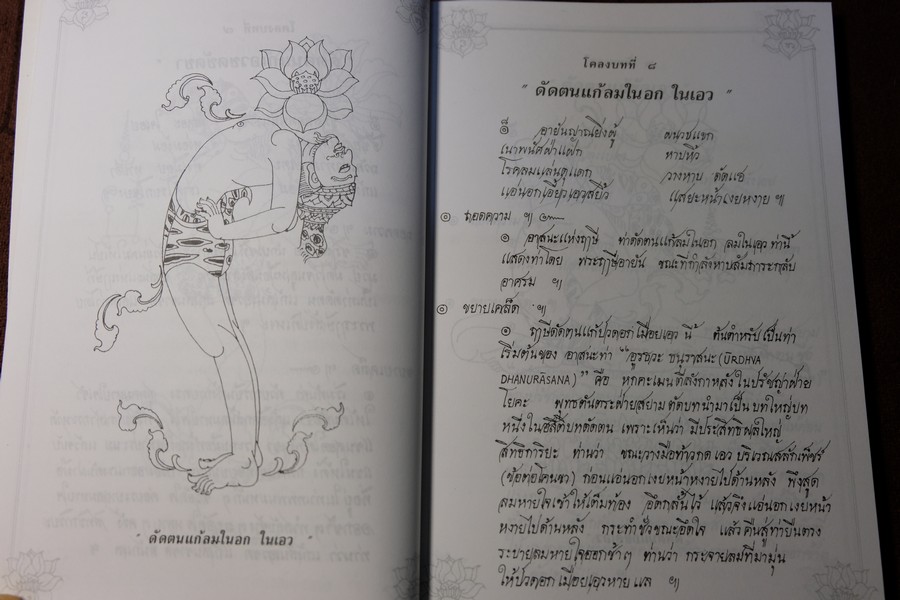 " ดัดตนแก้ลมในอก ในเอว "
โคลงบทที่ ๘
" ดัดตนแก้ลมในอก ในเอว "
๏ อายันญาณยิ่งผู้ ผนวชแขก
เนาพนัศฝ่าแฝก หาบหิ้ว
โรคลมแล่นดุแดก วางหาบ ดัดแฮ
แอ่นอกเอี้ยวเอวสยิ้ว แสยะหน้าเงยหงาย ๚
๏ ถอดความ ๚
๏ อาสนะแห่งฤาษี ท่าดัดตนแก้ลมในอก ลมในเอวท่านี้
แสดงท่าโดย พระฤาษีอายัน ขณะที่กำลังหาบสัมภาระกลับ
อาศรม ๚
๏ ขยายเคล็ด ๚
๏ ฤาษีดัดตนแก้ปวดอกเมื่อยเอว นี้ ต้นตำหรับเป็นท่า
เริ่มต้นของ อาสนะท่า "อูรธวะ ธนุราสนะ (ŪRDHVA
DHANURĀSANA)" คือ หกคะเมนตีลังกาหลังในปรัชญาฝ่าย
โยคะ พุทธตันตระฝ่ายสยาม ตัดบทนำมาเป็นบทใหญ่บท
หนึ่งในอิสีดัดตน เพราะเห็นว่า มีประสิทธิผลใหญ่
สิทธิการิยะ ท่านว่า ขณะวางมือท้าวกดเอว บริเวณสลักเพ็ชร์
(ข้อต่อโคนขา) ก่อนแอ่นอกเงยหน้าหงายไปด้านหลัง พึงสูด
ลมหายใจเข้าให้เต็มท้อง อึดกลั้นไว้ แล้วจึงแอ่นอกเงยหน้า
หงายไปด้านหลัง กระทำชั่วขณะอึดใจ แล้วคืนสู่ท่ายืนตรง
ระบายลมหายใจออกช้าๆ ท่านว่า กระจายลมที่มามุ่น
ให้ปวดอกเมื่อยเอวหาย แล ๚